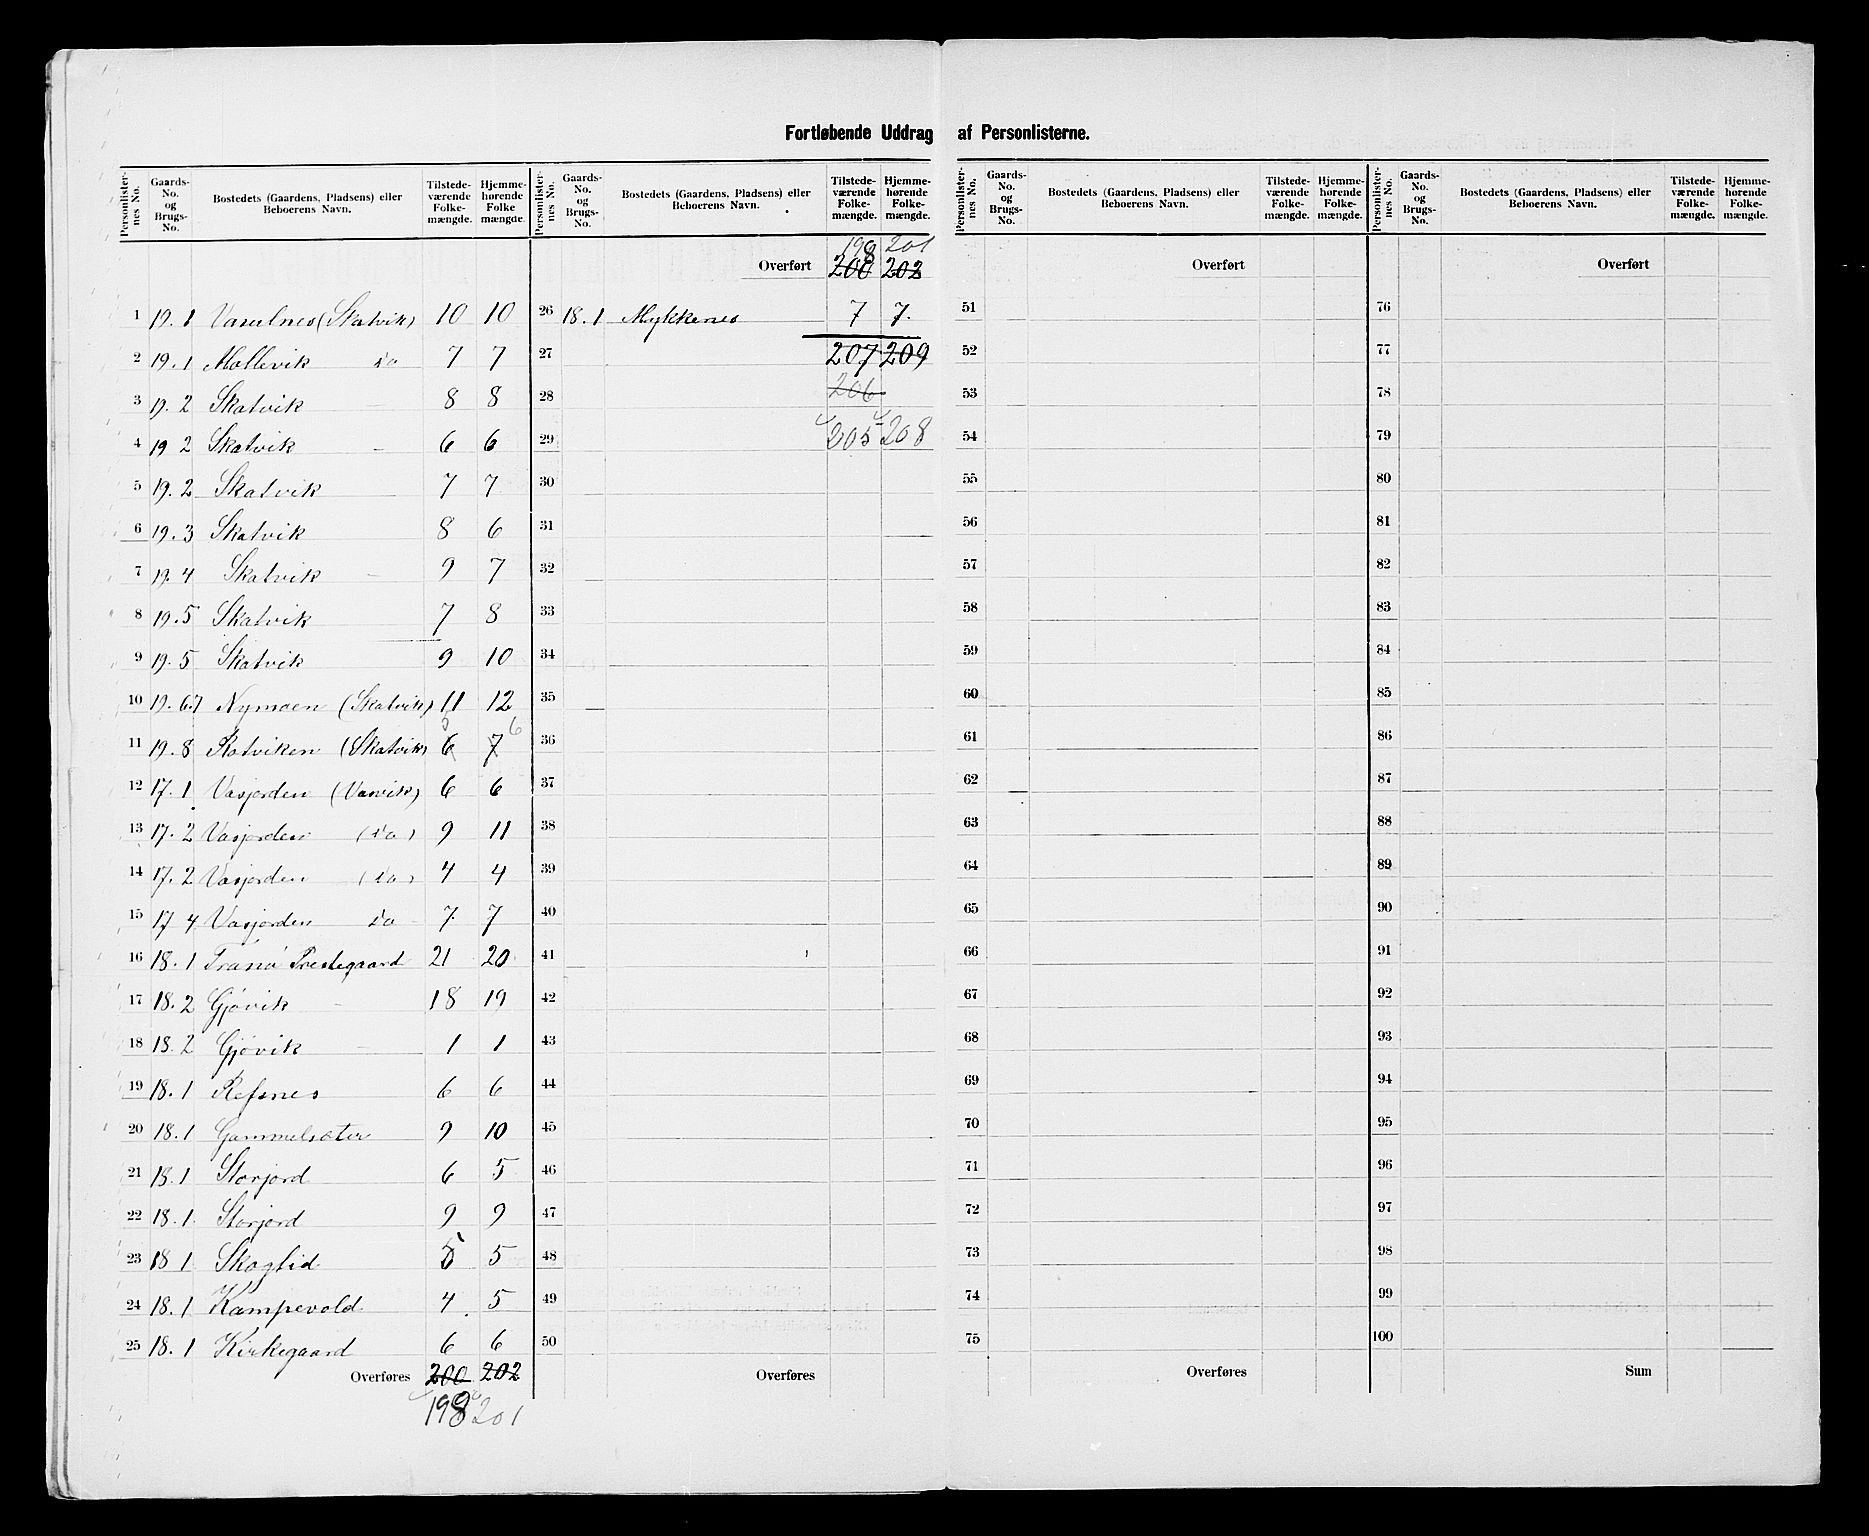 Fortløbende Uddrag af Personlisterne.
Personlister-nes No. | Gaards-No. og Brugs-No. | Bostedets (Gaardens, Pladsens) eller Beboerens Navn. | Tilstede-værende Folke-mængde. | Hjemme-hørende Folke mængde.
1 19.1 Vasselnes (Skatvik) 10 10
2 19.1 Mollevik do 7 7
3 19.2 Skatvik 8 8
4 19 2 Skatvik - 6 6
5 19.2 Skatvik 7 7
6 19.3 Skatvik 8 6
7 19.4 Skatvik - 9 7
8 19.5 Skatvik 7 8
9 19.5 Skatvik 9 10
10 19.67 Nymoen (Skatvik) 11 12
11 19.8 Rotviken (Skatvik) 6 5 7 6
12 17.1 Vasjorden (Vasvik) 6 6
13 17.2 Vasjorden (do) 9 11
14 17.2 Vasjorden (do) 4 4
15 17 4 Vasjorden do 7 7
16 18.1 Tranö Prestegaard 21 20
17 18.2 Gjövik - 18 19
18 18.2 Gjövik - 1 1
19 18.1 Refsnes 6 6
20 18.1 Gammelsæter 9 10
21 18.1 Storjord 6 5
22 18.1 Storjord 9 9
23 18 1 Skoglid 5 5
24 18.1 Kampevold 4 5
25 18.1 Kirkegaard 6 6
Overføres 200 202
198 201
Personlister-nes No. | Gaards-No. og Brugs-No. | Bostedets (Gaardens, Pladsens) eller Beboerens Navn. | Tilstede-værende Folke-mængde. | Hjemme-hørende Folke-mængde.
198 201
Overført 200 202
26 18.1 Mykkenes 7 7.
27 207 209
28 206
29 205 208
30
31
32
33
34
35
36
37
38
39
40
41
42
43
44
45
46
47
48
49
50
Overføres
Personlister-nes No. | Gaards-No. og Brugs-No. | Bostedets (Gaardens, Pladsens) eller Beboerens Navn. | Tilstede-værende Folke-mængde. | Hjemme-hørende Folke-mængde.
Overført
51
52
53
54
55
56
57
58
59
60
61
62
63
64
65
66
67
68
69
70
71
72
73
74
75
Overføres
Personlister-nes No. | Gaards-No. og Brugs-No. | Bostedets (Gaardens, Pladsens) eller Beboerens Navn. | Tilstede-værende Folke-mængde. | Hjemme-hørende Folke-mængde.
Overført
76
77
78
79
80
81
82
83
84
85
86
87
88
89
90
91
92
93
94
95
96
97
98
99
100
Sum